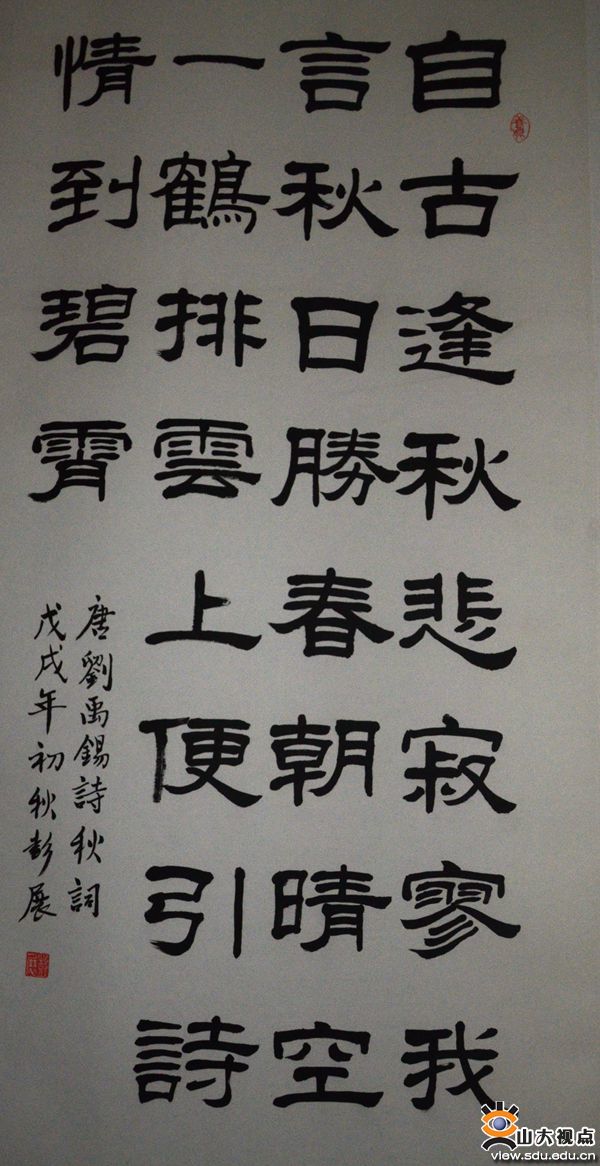 自古逢秋悲寂寥我
言秋日勝春朝晴空
一鶴排雲上便引詩
情到碧霄
唐劉禹錫詩秋詞
戊戌年初秋彭展
山大视点
view.sdu.edu.cn